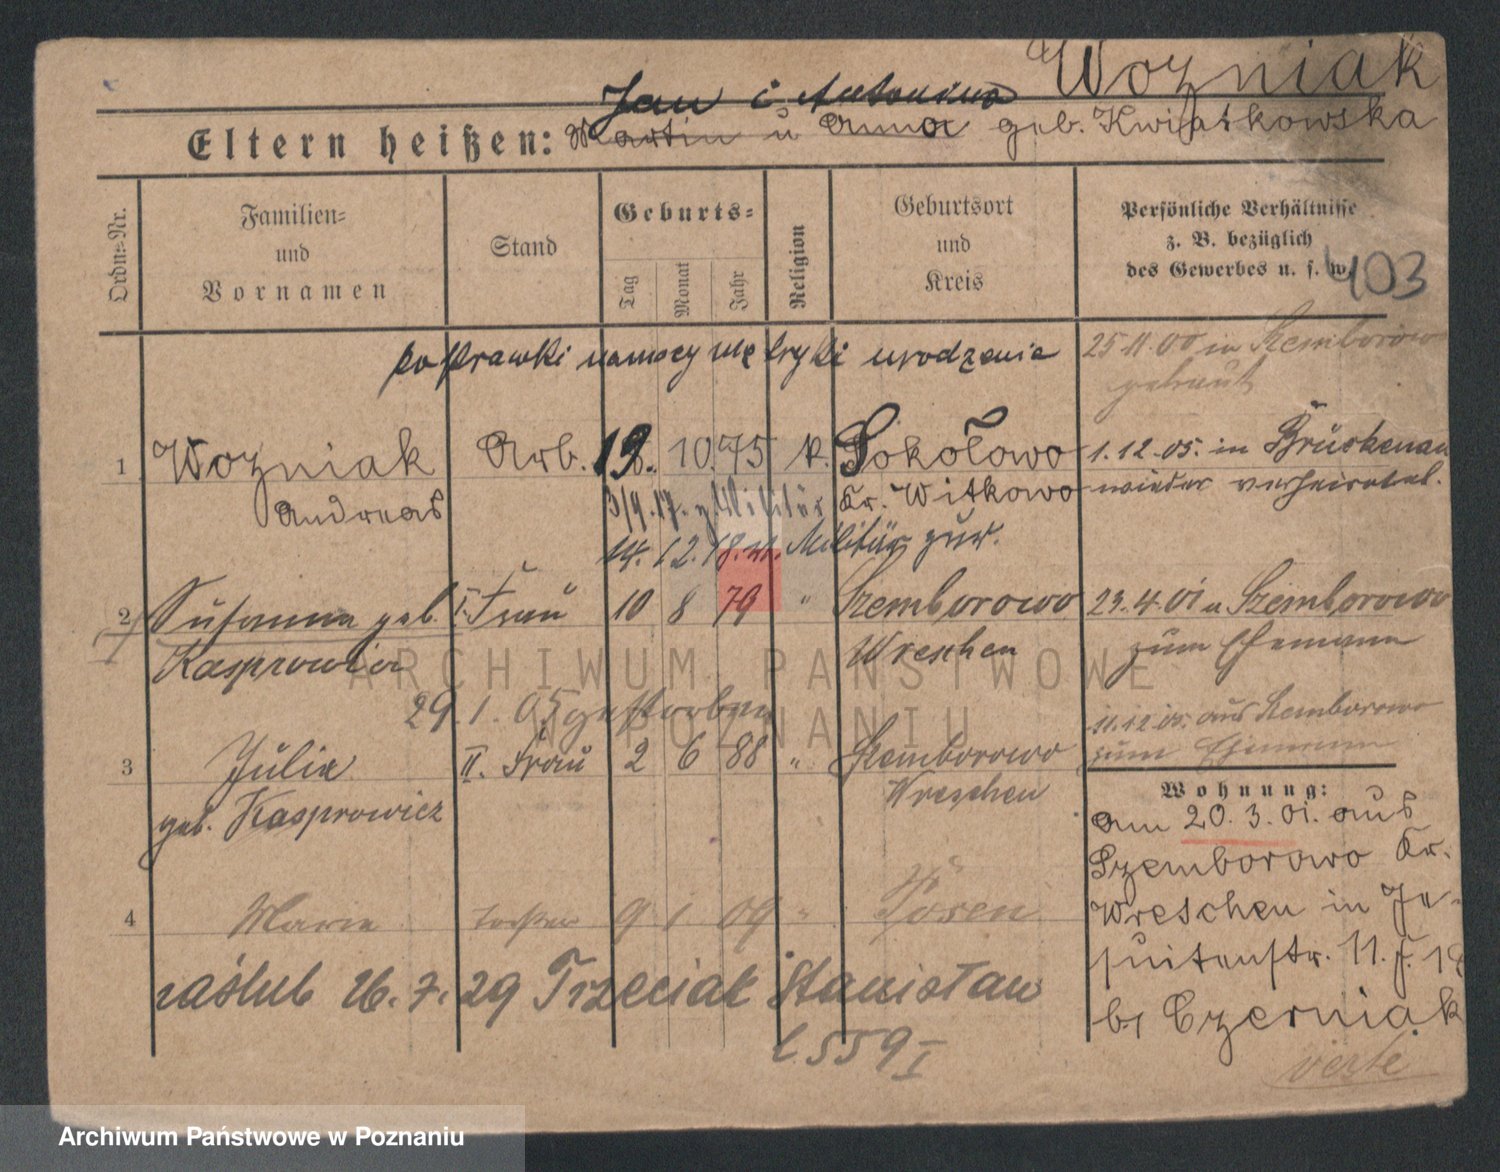 Wozniak
Jan i Antonina
Eltern heißen: Martin u Anna geb. Kwiatkowska
Ordn.=Nr.
Familien=
und
Vornamen
Stand
Geburts=
Tag
Monat
Jahr
Religion
Geburtsort
und
Kreis
Persönliche Verhältnisse
z. B. bezüglich
des Gewerbes u. s. w.
403
poprawki na mocy metryki urodzenia
25 11.00 in Szemborowo
getraut
1 Wozniak Arb. 19. 10. 75 k. Sokołowo 1.12.05. in Brückenau
Andreas Kr. Witkowo wieder verheiratet.
3/9.17. z. Militär
14.12.18. v. Militär zur.
2 Susanna geb. I. Frau 10 8 79 " Szemborowo 23.4.01 a Szemborowo
Kasprowicz Wreschen zum Ehemann
29.1.05 gestorben
11.12.05. aus Szemborowo
zum Ehemann
3 Julia II. Frau 2 6 88 " Szemborowo
geb. Kasprowicz Wreschen
4 Marie Tochter 9 1 09 " Posen
zaślub 26.7.29 Trzeciak Stanisław
l. 559 I
Wohnung:
am 20.3.01. aus
Szemborowo Kr.
Wreschen in Je-
suitenstr. 11.
b, Czerniak
verte
ARCHIWUM PAŃSTWOWE
W POZNANIU
Archiwum Państwowe w Poznaniu